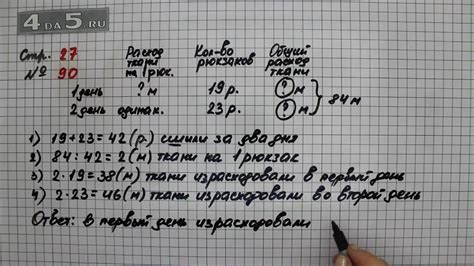 4DA5.RU
Стр. 27 Расход Кол-во Общий
№ 90 ткани рюкзаков расход
на 1 рюк. ткани
1 день ? м 19 р. ? м } 84 м
2 день одинак. 23 р. ? м
1) 19+23=42(р.) сшили за два дня
2) 84:42=2(м) ткани на 1 рюкзак
3) 2·19=38(м) ткани израсходовали в первый день
4) 2·23=46(м) ткани израсходовали во второй день
Ответ: в первый день израсходовали